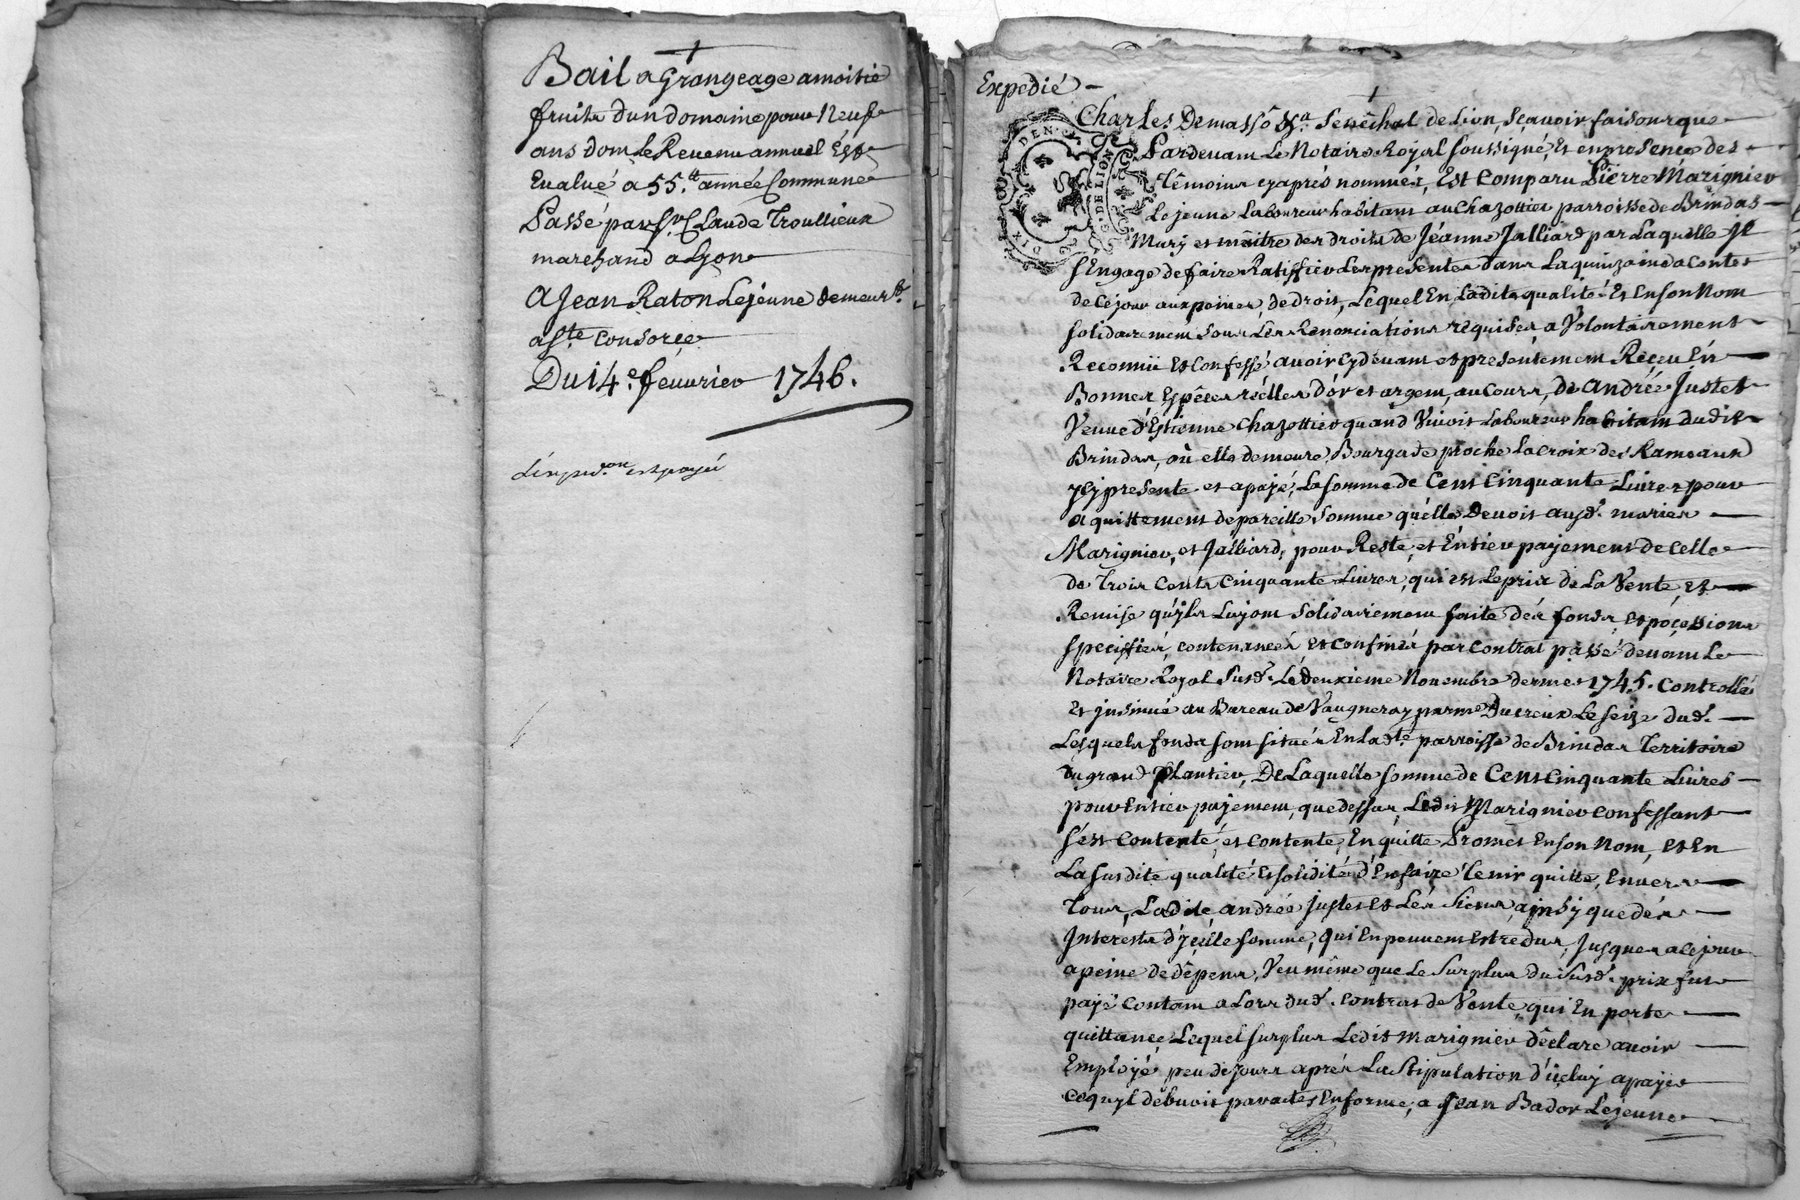 Bail a Grangeage a moitié
fruits d'un domaine pour Neuf
ans dont le Revenu annuel Est
Evalué a 55.lt année Commune
Passé par Sr. Claude Troullieux
marchand a Lyon
A Jean Raton Lejeune demeurt.
a Ste Consorce
Du 14e. feuurier 1746.
est payé
Expedié
Charles Demasso Sgr. Senéchal de Lion, sçavoir faisons que
Pardevant Le Notaire Royal soussigné, Et en presence des
Témoins cy après nommés, Est Comparu Pierre Marignier
Le jeune Laboureur habitant au Chazottier parroisse de Brindas
Mary et maître des droits de Jéanne Jalliard par Laquelle Il
s'Engage de faire Ratiffier Les presentes dans La quinzaine a conter
de ce jour aux peines de droit, Lequel En Ladite qualité Et En son Nom
solidairement sous Les Renonciations requises a Volontairement
Reconnü Et Confessé avoir cy devant et presentement Réçeu En
Bonnes Espéces réelles d'or et argent, au Cours, de Andrée Justet
Veuve d'Estienne Chazottier quand Vivoit Laboureur habitant dudit
Brindas, où elle demeure Bourgade proche La croix des Rameaux
ycy presente et a payé, La somme de Cent Cinquante Livres pour
a quittement de pareille somme qu'elle Devoit ausd. mariés
Marignier, et Jalliard, pour Reste, et Entier payement de Celle
de Trois Cents Cinquante Livres, qui est Le prix de La Vente, Et
Remise qu'yls Luy ont solidairement faite dés fonds, et poçessions
speciffiés, contenancés, et confinés par Contrat passé devant Le
Notaire Royal Susd. Le deuxieme Novembre dernier 1745. Controllé
Et jnsinué au Bureau de Vaugneray par me Ducreux Le seize dud.
Lesquels fonds sont situés En Ladte parroisse de Brindas Territoire
du grand Plantier, De Laquelle somme de Cent Cinquante Livres
pour Entier payement, que dessus, Ledit Marignier Confessant
s'est Contenté, et Contente, En quitte Promet En son Nom, et En
La susdite qualité Et solidité d'En faire Tenir quitte, Envers
Tous, Ladite Andrée Justet et Les Siens, ainsy que dés
Interests d'ycelle somme, qui En peuvent Estre dus, Jusques a ce jour
a peine de dépens, Veu même que Le surplus du susd. prix fut
payé Contant a Lors dud. Contrat de Vente, qui En porte
quittance Lequel surplus Ledit Marignier déclare avoir
Employé peu de jours aprés La Stipulation d'iceluy a payer
ce qu'yl debvoit par actes En forme, a Jean Bador Lejeune